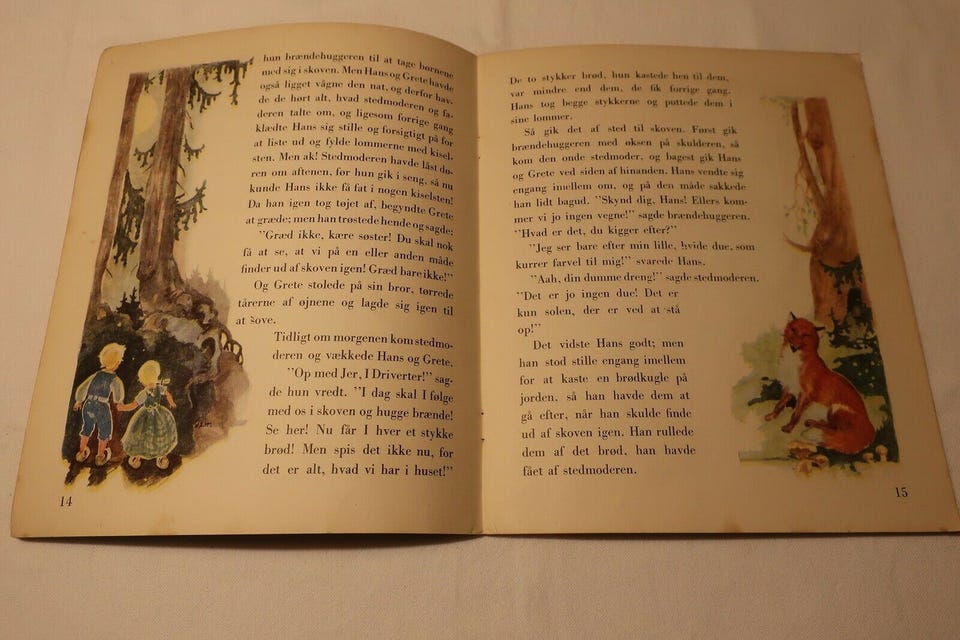 hun brændehuggeren til at tage børnene
med sig i skoven. Men Hans og Grete havde
også ligget vågne den nat, og derfor hav-
de de hørt alt, hvad stedmoderen og fa-
deren talte om, og ligesom forrige gang
klædte Hans sig stille og forsigtigt på for
at liste ud og fylde lommerne med kisel-
sten. Men ak! Stedmoderen havde låst dø-
ren om aftenen, før hun gik i seng, så nu
kunde Hans ikke få fat i nogen kiselsten!
Da han igen tog tøjet af, begyndte Grete
at græde; men han trøstede hende og sagde:
"Græd ikke, kære søster! Du skal nok
få at se, at vi på en eller anden måde
finder ud af skoven igen! Græd bare ikke!"
Og Grete stolede på sin bror, tørrede
tårerne af øjnene og lagde sig igen til
at sove.
Tidligt om morgenen kom stedmo-
deren og vækkede Hans og Grete.
"Op med Jer, I Driverter!" sag-
de hun vredt. "I dag skal I følge
med os i skoven og hugge brænde!
Se her! Nu får I hver et stykke
brød! Men spis det ikke nu, for
det er alt, hvad vi har i huset!"
14
De to stykker brød, hun kastede hen til dem,
var mindre end dem, de fik forrige gang.
Hans tog begge stykkerne og puttede dem i
sine lommer.
Så gik det af sted til skoven. Først gik
brændehuggeren med øksen på skulderen, så
kom den onde stedmoder, og bagest gik Hans
og Grete ved siden af hinanden. Hans vendte sig
engang imellem om, og på den måde sakkede
han lidt bagud. "Skynd dig, Hans! Ellers kom-
mer vi jo ingen vegne!" sagde brændehuggeren.
"Hvad er det, du kigger efter?"
"Jeg ser bare efter min lille, hvide due, som
kurrer farvel til mig!" svarede Hans.
"Aah, din dumme dreng!" sagde stedmoderen.
"Det er jo ingen due! Det er
kun solen, der er ved at stå
op!"
Det vidste Hans godt; men
han stod stille engang imellem
for at kaste en brødkugle på
jorden, så han havde dem at
gå efter, når han skulde finde
ud af skoven igen. Han rullede
dem af det brød, han havde
fået af stedmoderen.
15